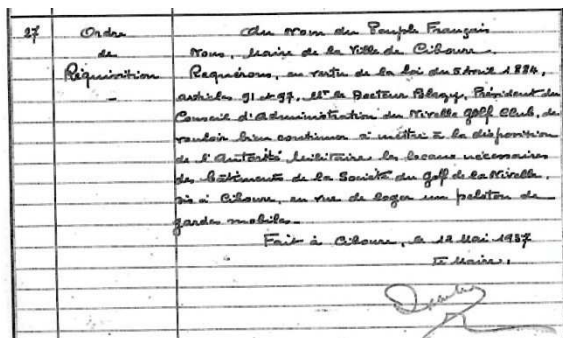 27 Ordre Au Nom du Peuple Français
de Nous, Maire de la Ville de Ciboure.
Réquisition Requérons, en vertu de la loi du 5 Avril 1884,
articles 91 et 97, Mr le Docteur Blazy, Président du
Conseil d'Administration du Nivelle Golf Club, de
vouloir bien continuer à mettre à la disposition
de l'Autorité Militaire les locaux nécessaires
des bâtiments de la Société du golf de la Nivelle,
sis à Ciboure, en vue de loger un peloton de
gardes mobiles.
Fait à Ciboure, le 12 Mai 1937
Le Maire,